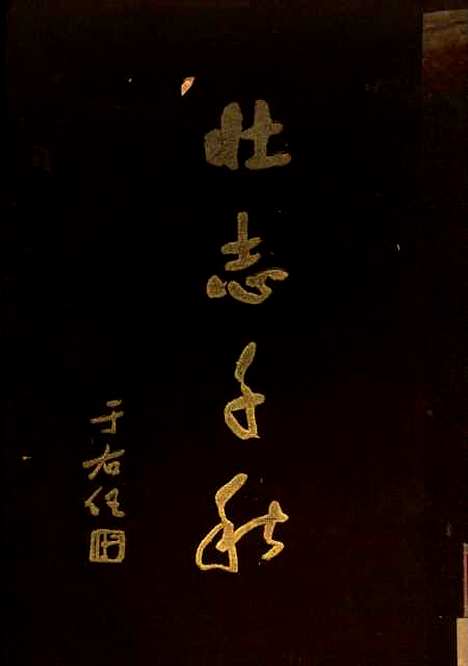 壮志千秋
于右任